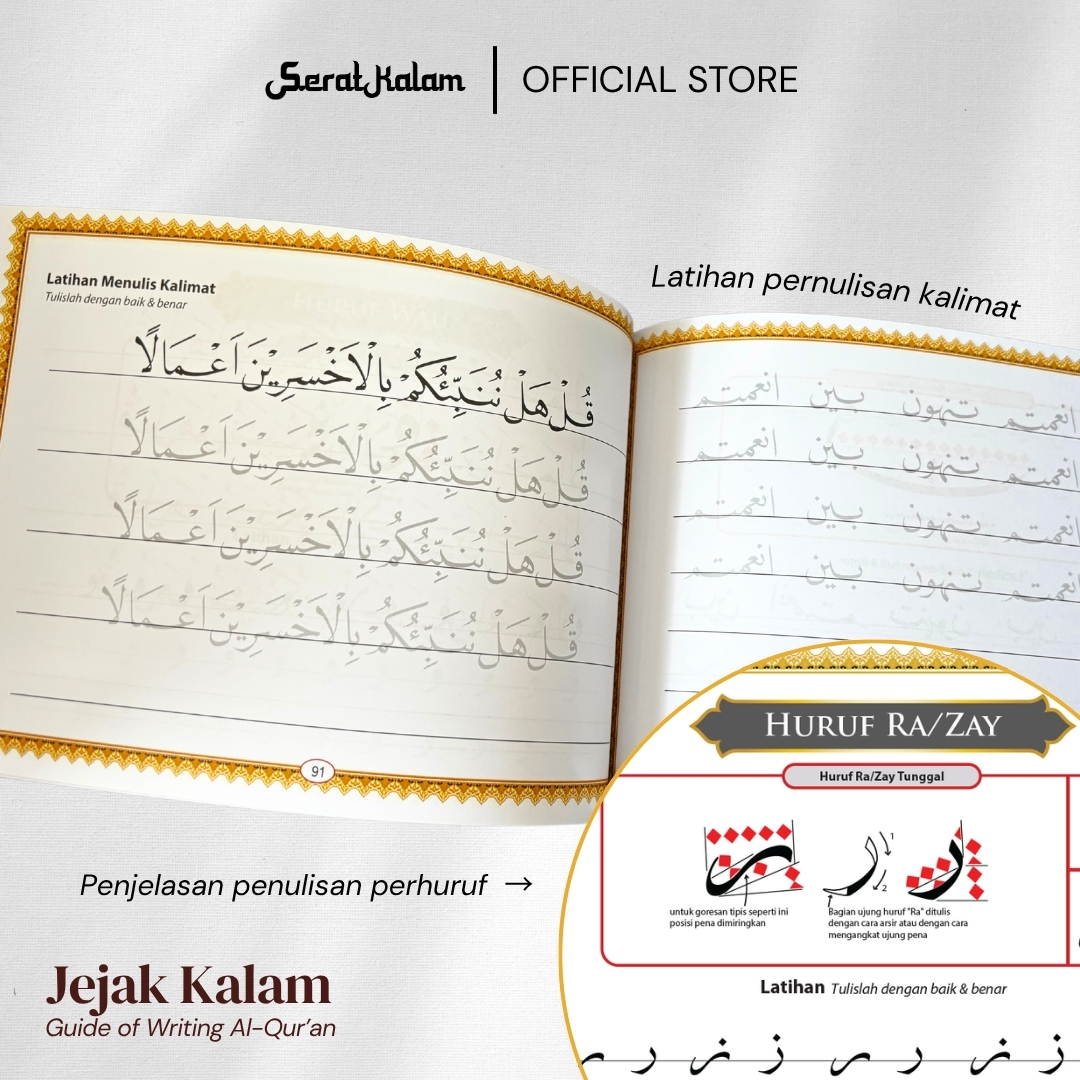 Serat Kalam | OFFICIAL STORE
Latihan pernulisan kalimat
Latihan Menulis Kalimat
Tulislah dengan baik & benar
قُلْ هَلْ نُنَبِّئُكُمْ بِالْاَخْسَرِيْنَ اَعْمَالًا
قُلْ هَلْ نُنَبِّئُكُمْ بِالْاَخْسَرِيْنَ اَعْمَالًا
قُلْ هَلْ نُنَبِّئُكُمْ بِالْاَخْسَرِيْنَ اَعْمَالًا
قُلْ هَلْ نُنَبِّئُكُمْ بِالْاَخْسَرِيْنَ اَعْمَالًا
91
انعمتم تنهون بين انعمتم
انعمتم تنهون بين انعمتم
انعمتم تنهون بين انعمتم
انعمتم تنهون بين انعمتم
HURUF RA/ZAY
Huruf Ra/Zay Tunggal
1
2
untuk goresan tipis seperti ini
posisi pena dimiringkan
Bagian ujung huruf "Ra" ditulis
dengan cara arsir atau dengan cara
mengangkat ujung pena
Latihan Tulislah dengan baik & benar
ز ز ر ر ز ز ر ر
Penjelasan penulisan perhuruf →
Jejak Kalam
Guide of Writing Al-Qur'an